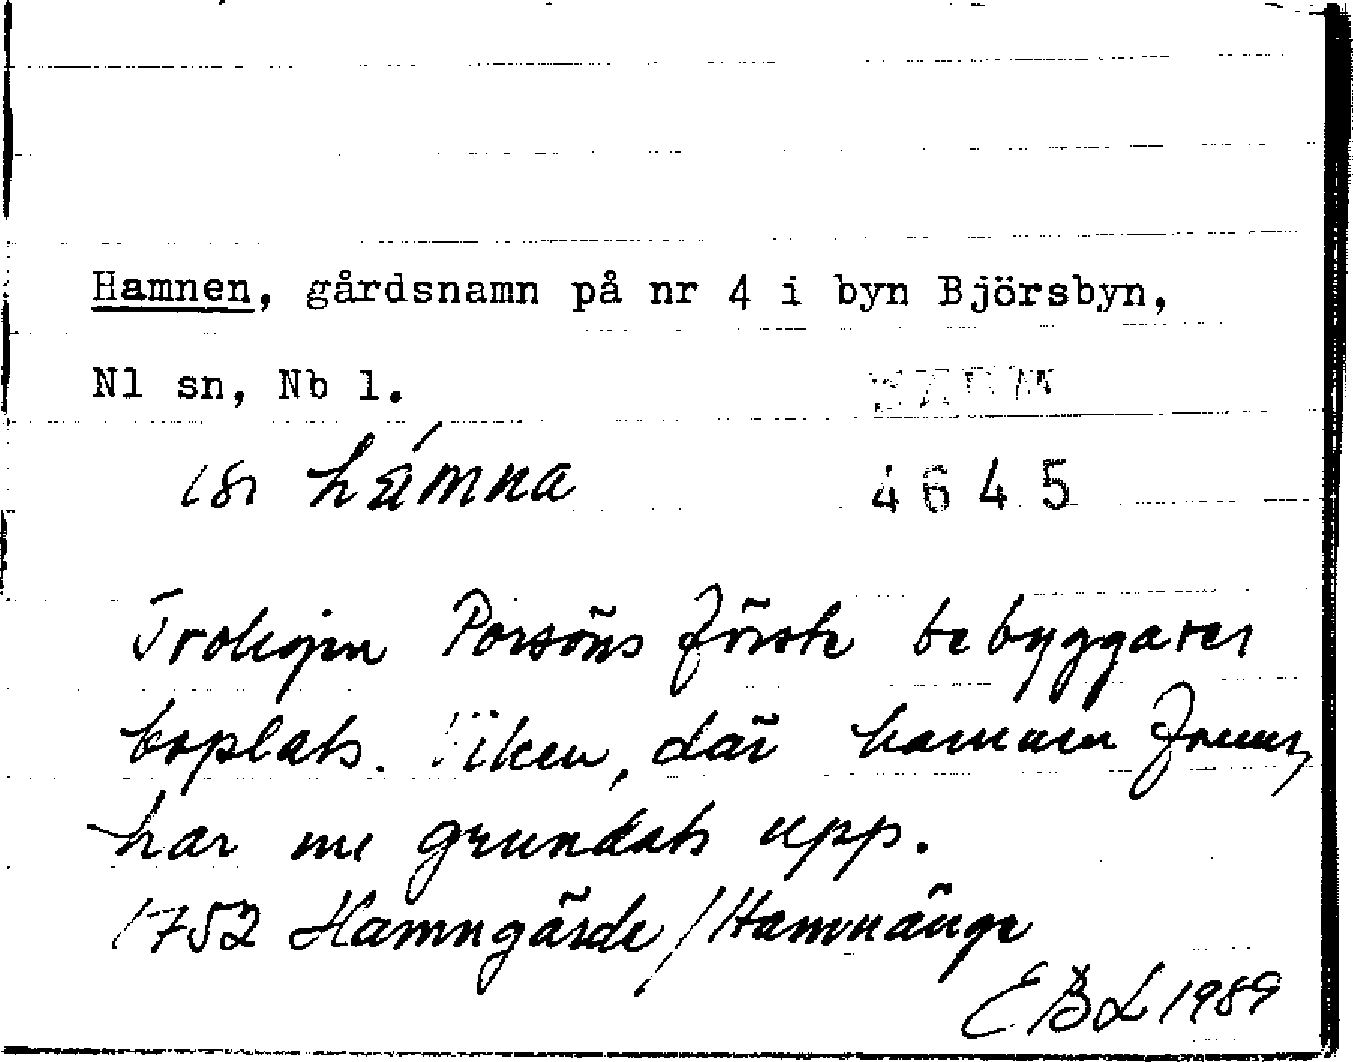 Hamnen, gårdsnamn på nr 4 i byn Björsbyn,
Nl sn, Nb l.
hámna
4645
Troligen Porsöns första bebyggares
boplats. Viken, där hamnen funnits,
har nu grundats upp.
1752 Hamngärde/Hamnänge
EBL 1989